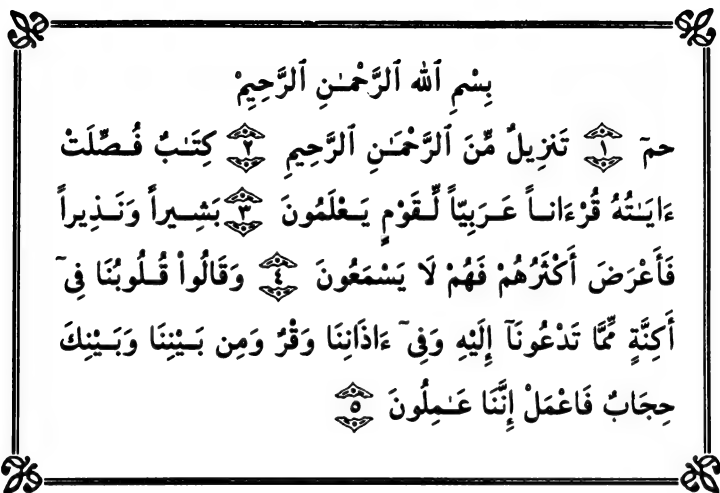 بِسْمِ ٱللهِ ٱلرَّحْمَـٰنِ ٱلرَّحِيمِْ
حمٓ ﴿١﴾ تَنزِيلٌ مِّنَ ٱلرَّحْمَـٰنِ ٱلرَّحِيمِ ﴿٢﴾ كِتَـٰبٌ فُـصِّلَتْ
ءَايَـٰتُهُ قُرْءَانـاً عَـرَبِيّاً لِّـقَوْمٍ يَـعْلَمُونَ ﴿٣﴾ بَشِـيراً وَنَـذِيراً
فَأَعْرَضَ أَكْثَرُهُمْ فَهُمْ لَا يَسْمَعُونَ ﴿٤﴾ وَقَالُواْ قُـلُوبُنَا فِىٓ
أَكِنَّةٍ مِّمَّا تَدْعُونَآ إِلَيْهِ وَفِىٓ ءَاذَانِنَا وَقْرٌ وَمِن بَـيْنِنَا وَبَـيْنِكَ
حِجَابٌ فَاعْمَلْ إِنَّنَا عَـٰمِلُونَ ﴿٥﴾